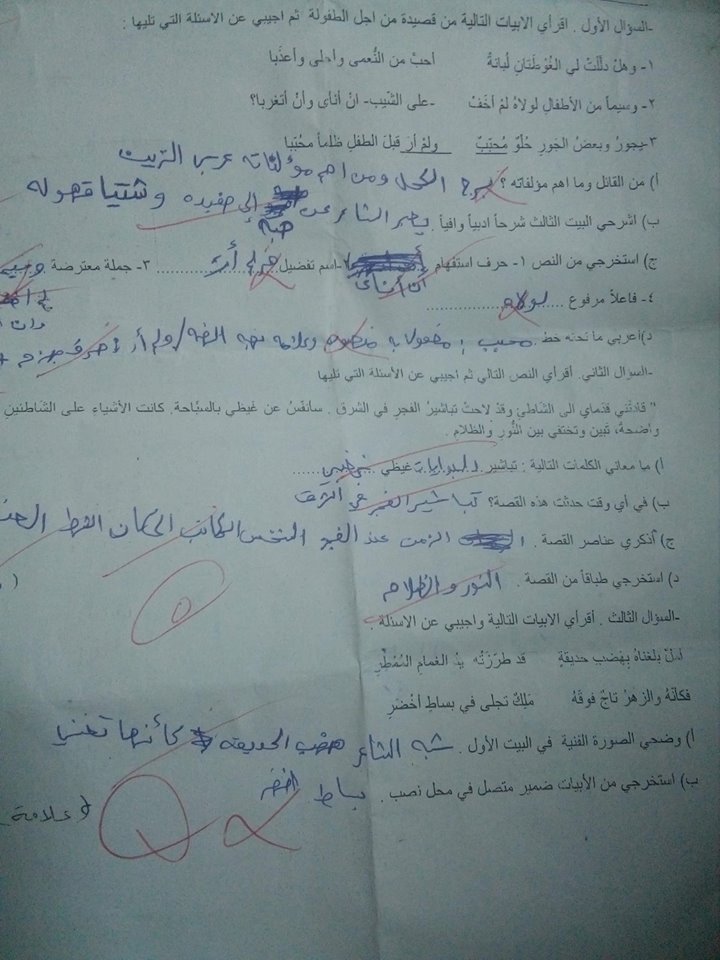 -السؤال الأول . اقرأي الابيات التالية من قصيدة من اجل الطفولة ثم اجيبي عن الاسئلة التي تليها :
١- وهل دللت لي الغوطتان لبانةً أحبَّ من النُعمى واحلى وأعذَبا
٢- وسيماً من الأطفالِ لولاهُ لمْ أخَفْ -على الشّيب- انْ أنأى وأنْ أتغربا؟
٣-يجورُ وبعضُ الجَورِ حُلْوٌ مُحبَّبٌ ولمْ أرَ قبلَ الطفلِ ظلماً محبَّبا
أ) من القائل وما اهم مؤلفاته ؟ ومن اهم مؤلفاته عرس الزيت
ب) اشرحي البيت الثالث شرحاً ادبياً وافياً . الشاعر عن إلى حفيده
ج) استخرجي من النص ١- حرف استفهام أن أنأى ٢-اسم تفضيل .......... ٣- جملة معترضة
٤- فاعلاً مرفوع لولاه
د)اعربي ما تحته خط . محبب : مفعولا به وعلامه نصبه الضمه / ولم أر
-السؤال الثاني. أقرأي النص التالي ثم اجيبي عن الأسئلة التي تليها
" قادتني قدماي الى الشاطئ وقدْ لاحتْ تباشيرُ الفجرِ في الشرق . سأنفّسُ عن غيظي بالسبَّاحة. كانت الأشياءُ على الشاطئينِ
واضحةً، تبين وتختفي بين النُّورِ والظلام .
أ) ما معاني الكلمات التالية : تباشير البدايات غيظي غضبي
ب) في أي وقت حدثت هذه القصة؟ تباشير الفجر في الشرق
ج) أذكري عناصر القصة . الزمن عند الفجر الشخص الكاتب المكان الشط
د) استخرجي طباقاً من القصة . النور والظلام
-السؤال الثالث . أقرأي الابيات التالية واجيبي عن الاسئلة :
بلغناهُ بِهضبِ حديقةٍ قد طرّزَتْه يدُ الغمامِ المُمْطِرِ
فكأنّهُ والزهرُ تاجٌ فوقَهُ مَلِكٌ تجلى في بساطٍ أخْضَرِ
أ) وضحي الصورة الفنية في البيت الأول . شبه الشاعر هضب الحديقه كأنها تغني
ب) استخرجي من الأبيات ضمير متصل في محل نصب . بساط اخضر
علامة